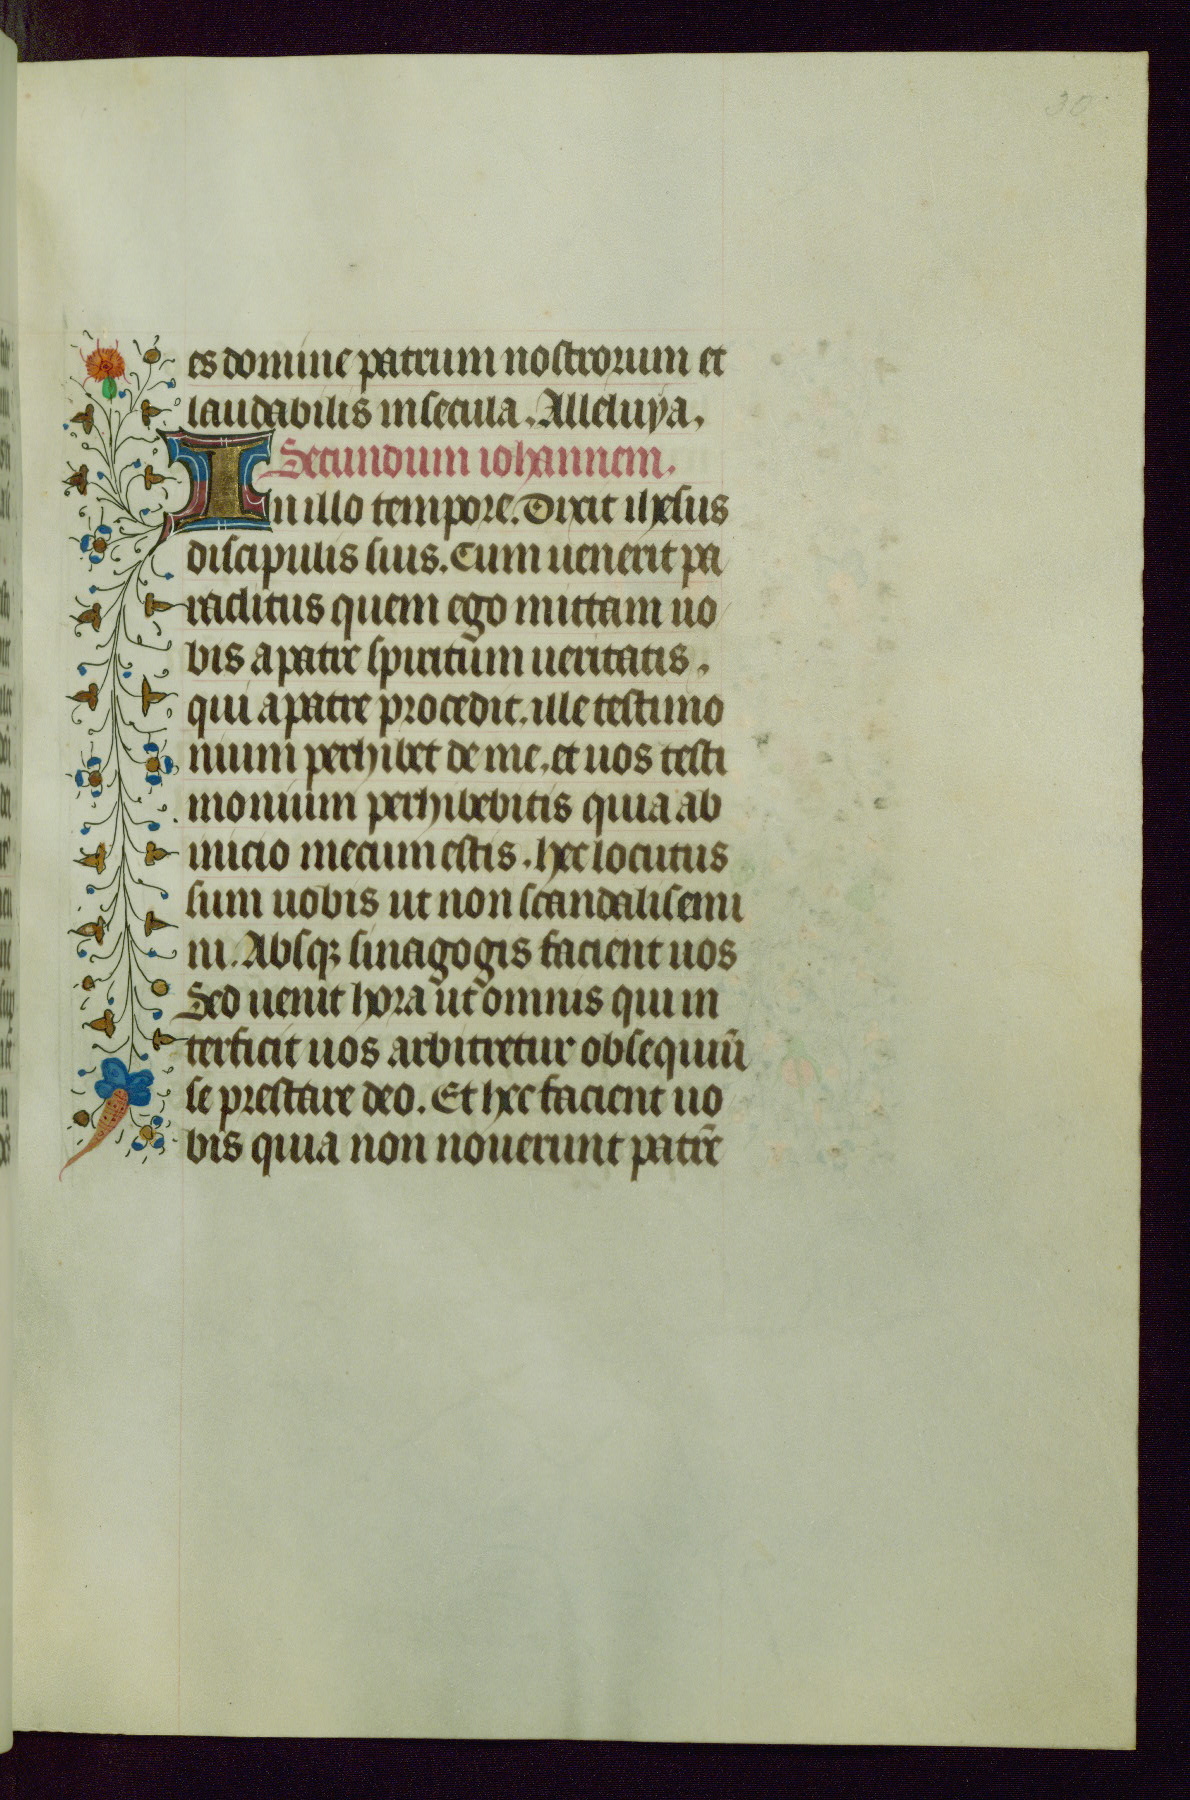 30
es domine patrum nostrorum et
laudabilis in secula. Alleluya.
Secundum iohannem.
In illo tempore. Dixit ihesus
discipulis suis. Cum uenerit pa
raclitus quem ego mittam uo
bis a patre spiritum ueritatis.
qui a patre procedit. ille testimo
nium perhibet de me. et uos testi
monium perhibebitis quia ab
inicio mecum estis. hec locutus
sum uobis ut non scandalisemi
ni. Absqꝫ sinagogis facient uos
Sed uenit hora ut omnis qui in
terficit uos arbitretur obsequiū
se prestare deo. Et hec facient uo
bis quia non nouerunt patrē